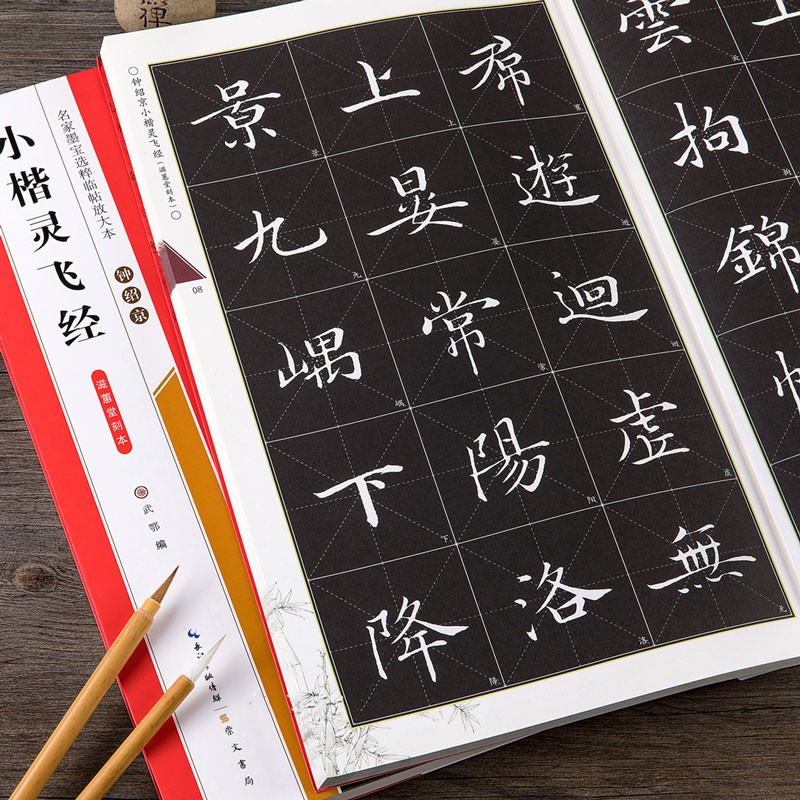 名家墨宝选粹临帖放大本
小楷灵飞经
钟绍京
滋蕙堂刻本
武鄂 编
崇文书局
钟绍京小楷灵飞经(滋蕙堂刻本)
08
雲拘錦
希遊迴虚無
上晏常陽洛
景九嵎下降